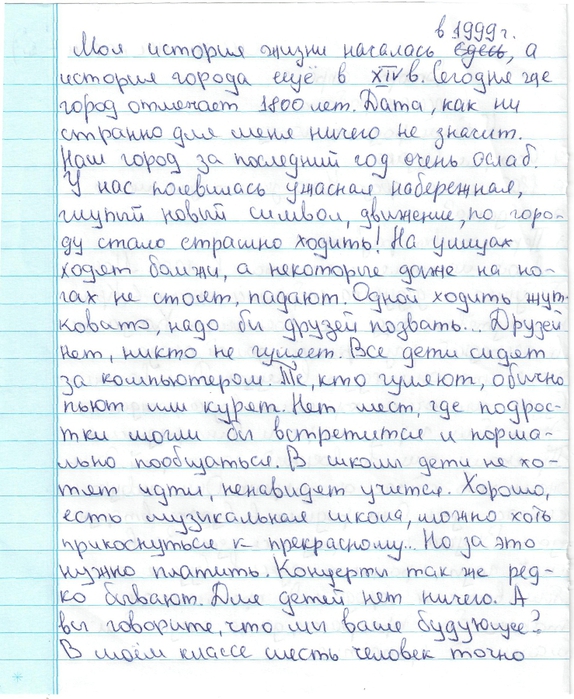 в 1999 г.
Моя история жизни началась здесь, а
история города ещё в XIV в. Сегодня где
город отмечает 1800 лет. Дата, как ни
странно для меня ничего не значит.
Наш город за последний год очень ослаб.
У нас поевилась ужасная набережная,
глупый новый символ, движение, по горо-
ду стало страшно ходить! На улицах
ходят бомжи, а некоторые даже на но-
гах не стоят, падают. Одной ходить жут-
ковато, надо бы друзей позвать... Друзей
нет, никто не гуляет. Все дети сидят
за компьютером. Те, кто гуляют, обычно
пьют или курят. Нет мест, где подрос-
тки могли бы встретится и норма-
льно пообщаться. В школы дети не хо-
тят идти, ненавидят учится. Хорошо,
есть музыкальная школа, можно хоть
прикоснуться к прекрасному... Но за это
нужно платить. Концерты так же ред-
ко бывают. Для детей нет ничего. А
вы говорите, что мы ваше будующее?
В моём классе шесть человек точно